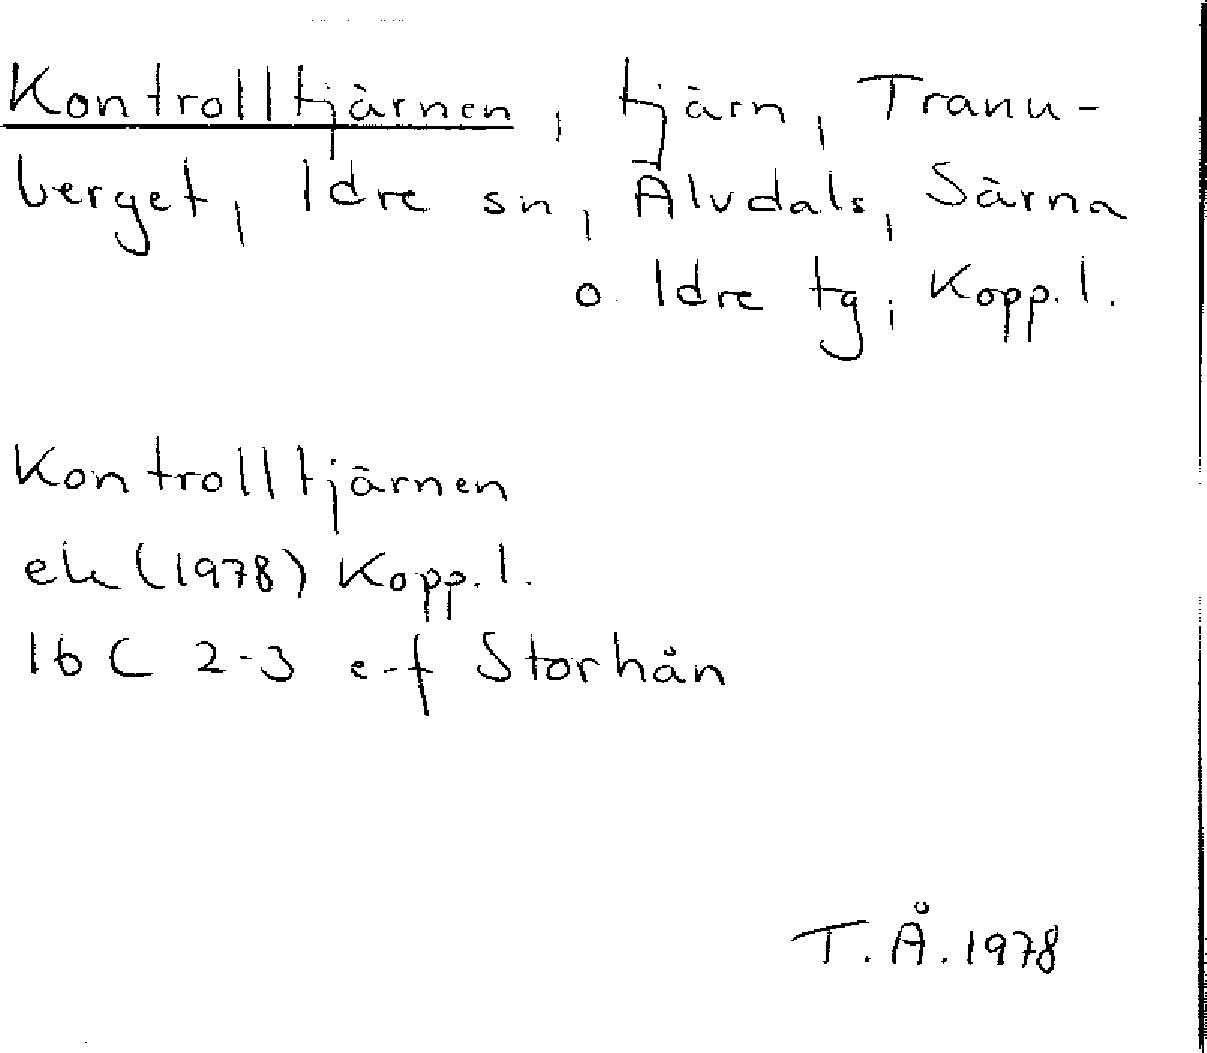 Kontrolltjärnen, tjärn, Tranu-
berget, Idre sn, Älvdals, Särna
o. Idre tg, Kopp. l.
Kontrolltjärnen
ek (1978) Kopp. l.
16 C 2-3 e-f Storhån
T. Å. 1978